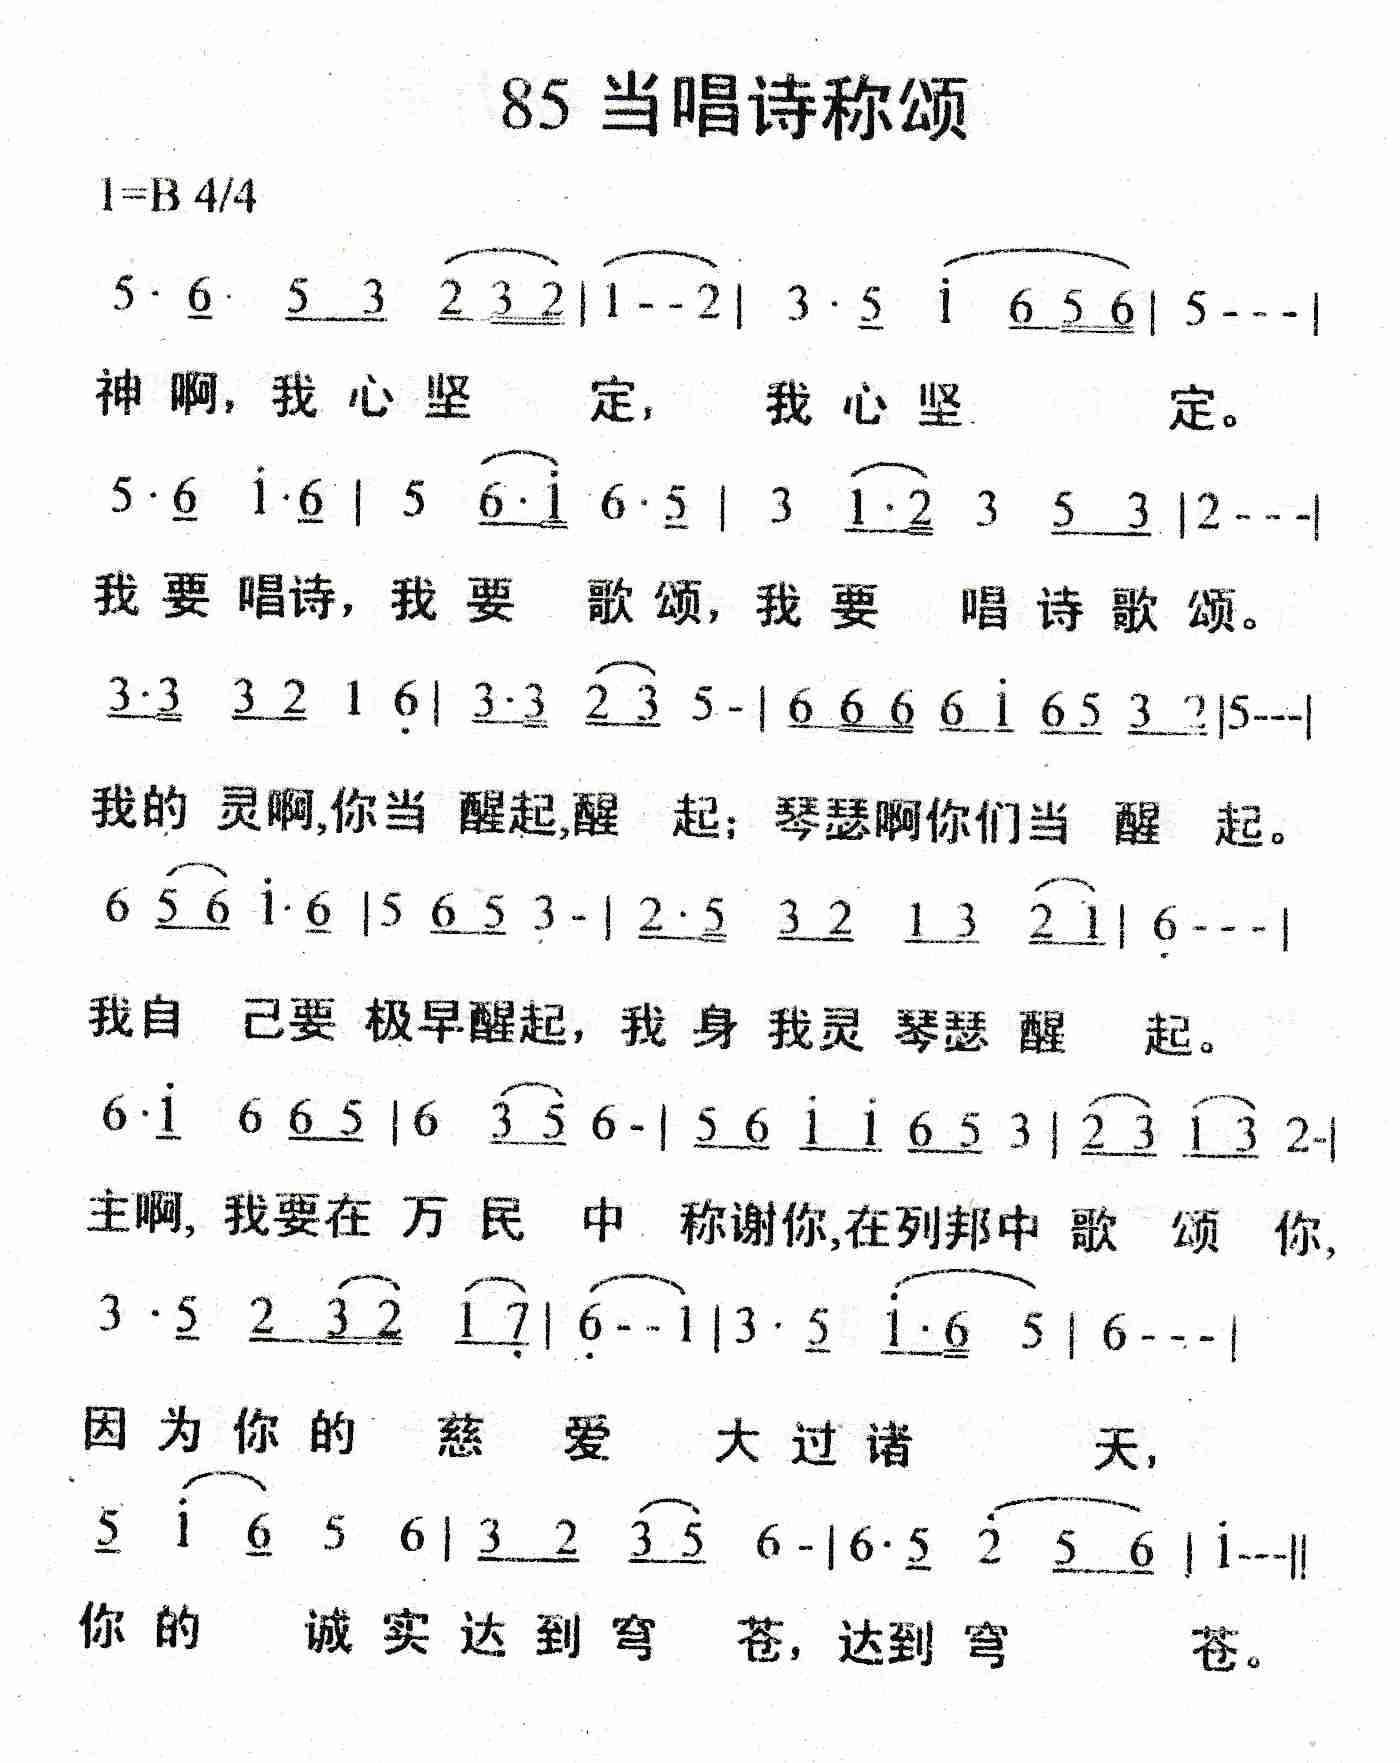 85 当唱诗称颂
1=B 4/4
5· 6· 5 3 2 3 2 | 1 - - 2 | 3 · 5 i 6 5 6 | 5 - - - |
神 啊, 我 心 坚 定, 我 心 坚 定。
5 · 6 i · 6 | 5 6 · i 6 · 5 | 3 1 · 2 3 5 3 | 2 - - - |
我 要 唱诗, 我 要 歌 颂, 我 要 唱 诗 歌 颂。
3·3 3 2 1 6 | 3·3 2 3 5 - | 6 6 6 6 i 6 5 3 2 | 5 - - - |
我的 灵啊,你当 醒起,醒 起; 琴瑟啊你们当 醒 起。
6 5 6 i · 6 | 5 6 5 3 - | 2 · 5 3 2 1 3 2 1 | 6 - - - |
我自 己要 极早醒起, 我 身 我灵 琴瑟 醒 起。
6 · i 6 6 5 | 6 3 5 6 - | 5 6 i i 6 5 3 | 2 3 1 3 2 - |
主啊, 我要在 万 民 中 称谢你,在列邦中 歌 颂 你,
3 · 5 2 3 2 1 7 | 6 - - 1 | 3 · 5 i · 6 5 | 6 - - - |
因 为 你 的 慈 爱 大 过 诸 天,
5 i 6 5 6 | 3 2 3 5 6 - | 6 · 5 2 5 6 | i - - - ||
你 的 诚 实 达 到 穹 苍, 达到 穹 苍。